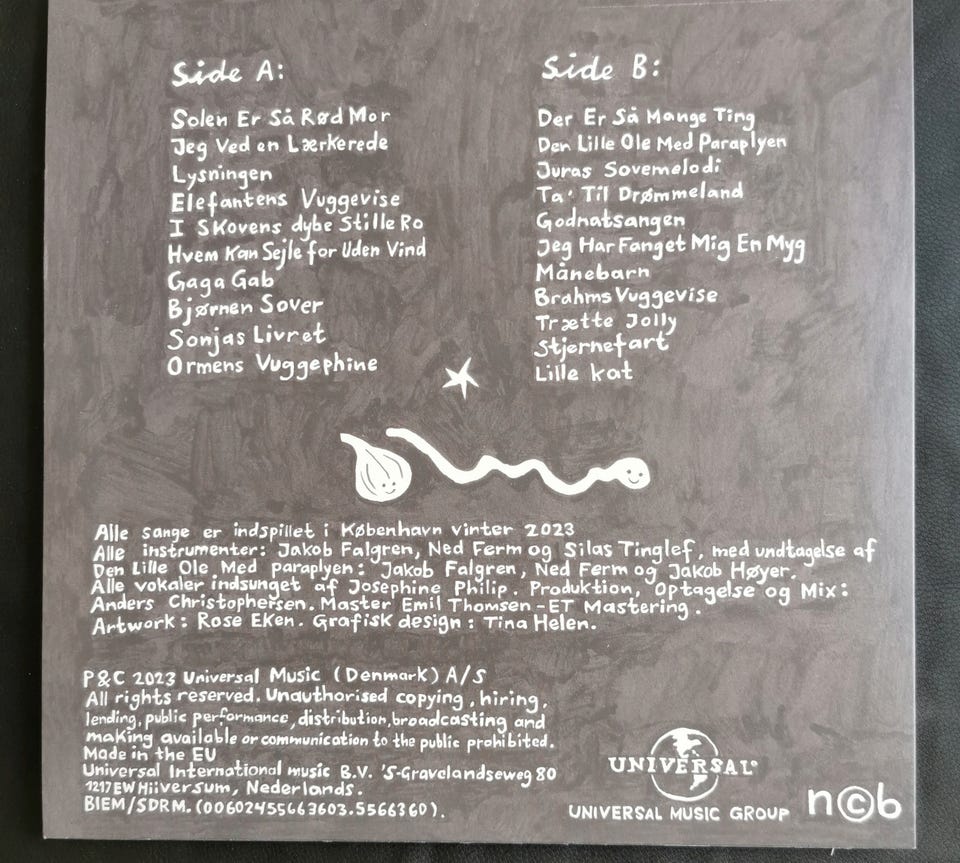 Side A:
Solen Er Så Rød Mor
Jeg Ved en Lærkerede
Lysningen
Elefantens Vuggevise
I Skovens dybe Stille Ro
Hvem Kan Sejle for Uden Vind
Gaga Gab
Bjørnen Sover
Sonjas Livret
Ormens Vuggephine
Side B:
Der Er Så Mange Ting
Den Lille Ole Med Paraplyen
Juras Sovemelodi
Ta' Til Drømmeland
Godnatsangen
Jeg Har Fanget Mig En Myg
Månebarn
Brahms Vuggevise
Trætte Jolly
Stjernefart
Lille kat
Alle sange er indspillet i København vinter 2023
Alle instrumenter: Jakob Falgren, Ned Ferm og Silas Tinglef, med undtagelse af
Den Lille Ole Med Paraplyen: Jakob Falgren, Ned Ferm og Jakob Høyer.
Alle vokaler indsunget af Josephine Philip. Produktion, Optagelse og Mix:
Anders Christophersen. Master Emil Thomsen - ET Mastering.
Artwork: Rose Eken. Grafisk design: Tina Helen.
P&C 2023 Universal Music (Denmark) A/S
All rights reserved. Unauthorised copying, hiring,
lending, public performance, distribution, broadcasting and
making available or communication to the public prohibited.
Made in the EU
Universal International music B.V. 'S-Gravelandseweg 80
1217 EW Hilversum, Nederlands.
BIEM/SDRM. (00602455663603. 5566360).
UNIVERSAL
UNIVERSAL MUSIC GROUP
n©b